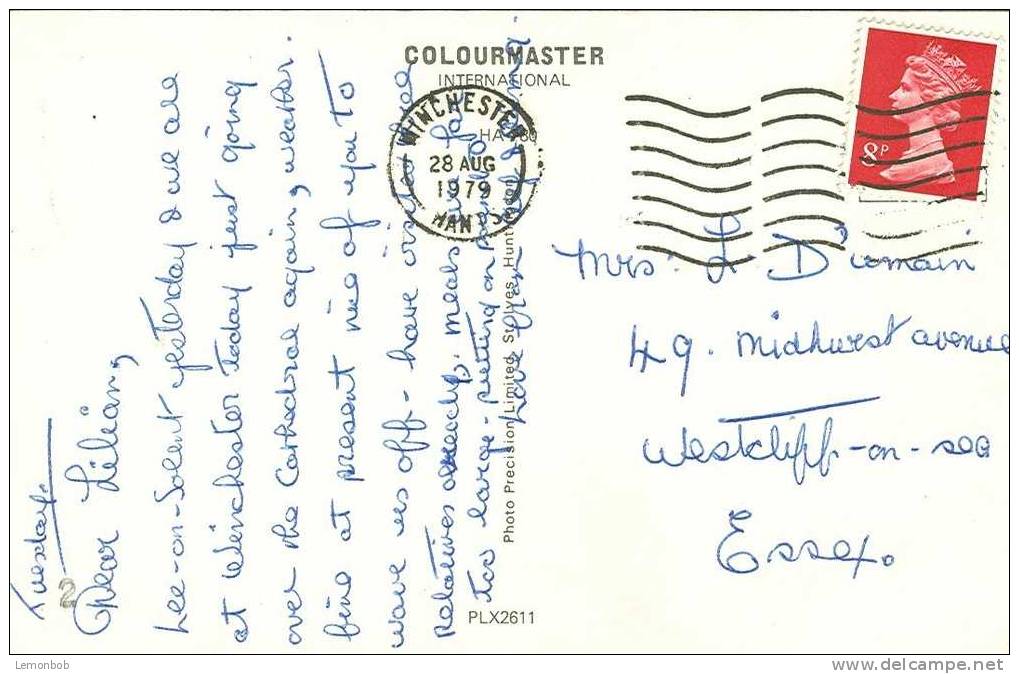 Tuesday.
Dear Lilian,
Lee-on-Solent yesterday & we are
at Winchester today just going
over the Cathedral again, weather
fine at present nice of you to
wave us off - have visited
Relatives already, meals are far
too large - putting on
Love
COLOURMASTER
INTERNATIONAL
WINCHESTER
28 AUG
1979
HANTS
Photo Precision Limited, St. Ives, Huntingdon
PLX2611
8P
Mrs. L.
49. Midhurst avenue
Westcliff-on-sea
Essex.
2
Lemonbob
www.delcampe.net